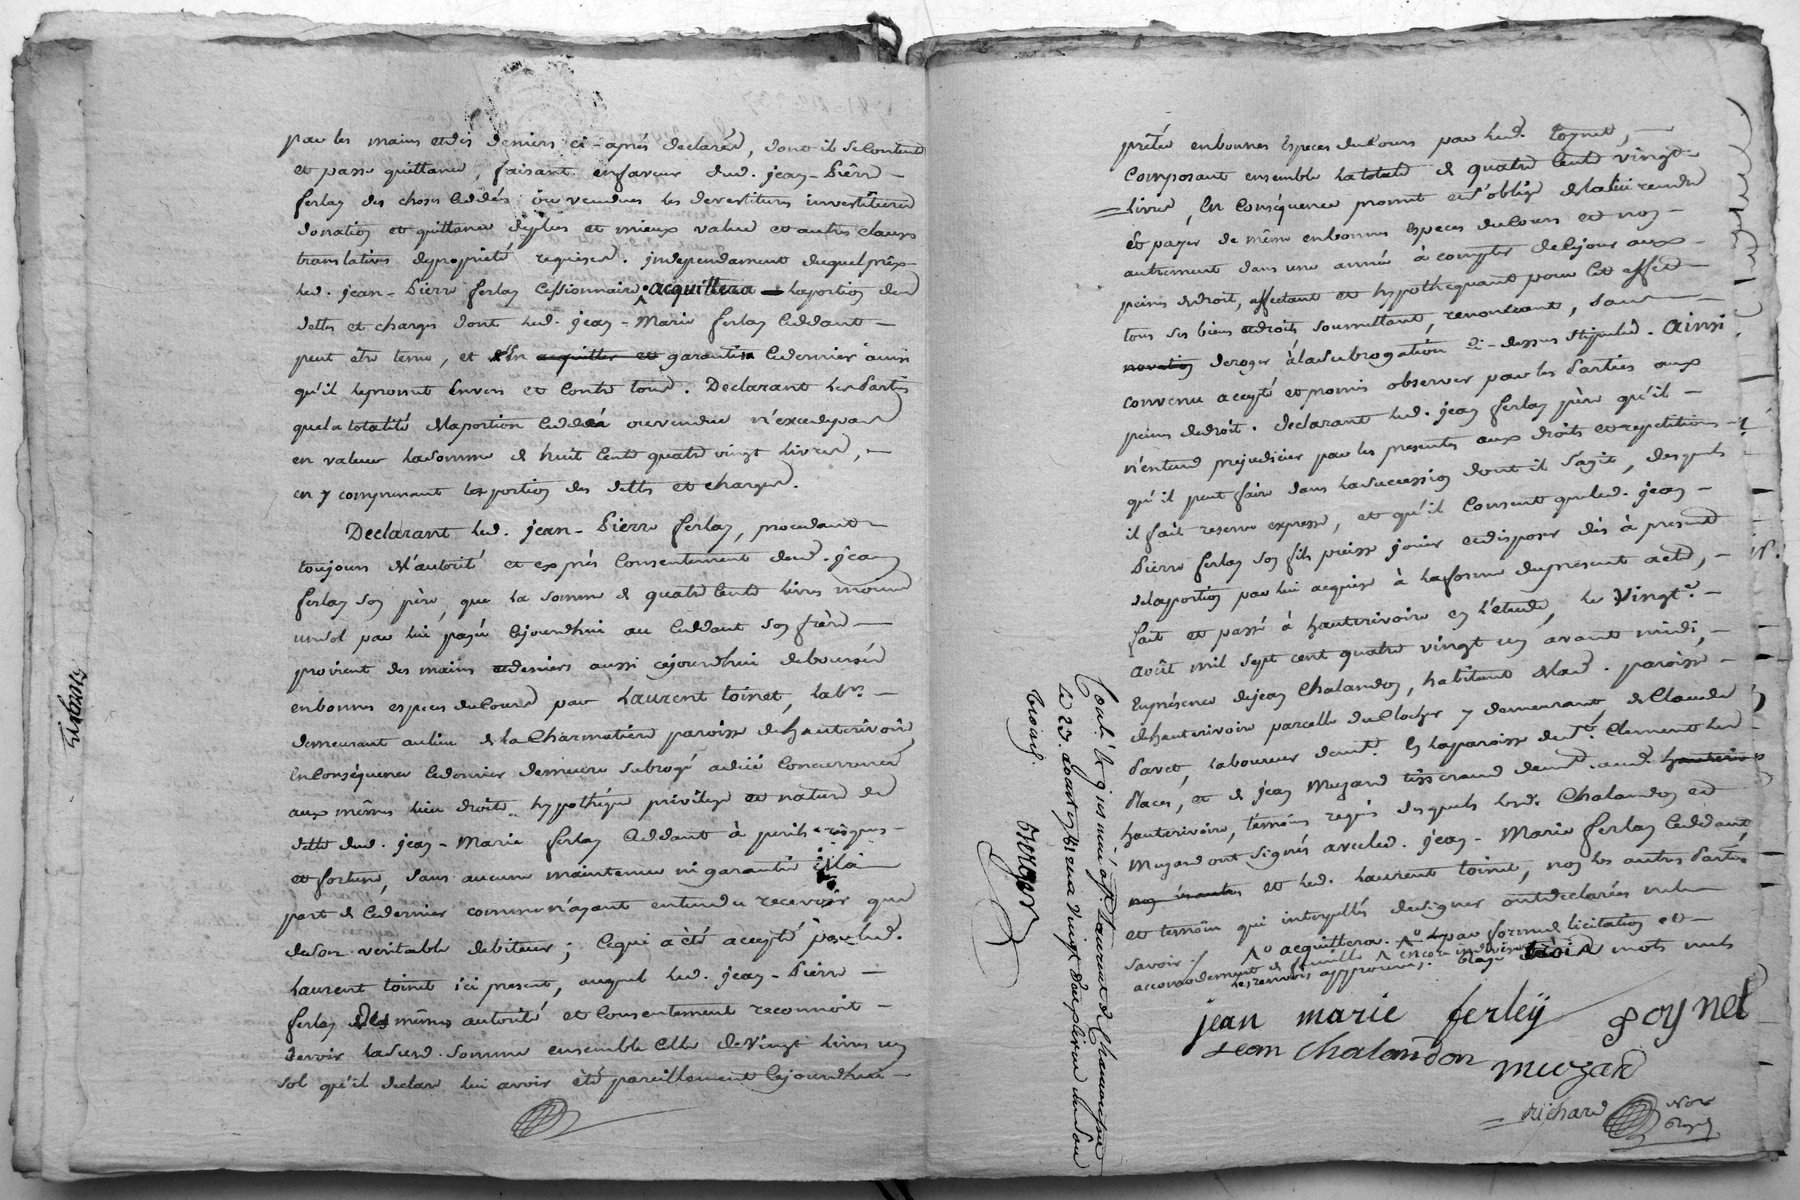 par les mains et des deniers ci-après declarés, dont il se Contente
et passe quittance, faisant en faveur dud. jean-Pierre
ferlay des choses Ceddées ou vendues les devestitures investitures
donation et quittance de plus et mieux value et autres clauses
translatives de propriété requises. independament duquel prix
led. jean-Pierre ferlay Cessionnaire acquittera la portion des
dettes et charges dont led. jean-Marie ferlay Ceddant
peut être tenu, et l'en acquitter et garantira Ce dernier ainsi
qu'il le promet Envers et Contre tous. Declarant les Parties
que la totalité de la portion Ceddée ou vendue n'excede pas
en valeur la somme de huit Cent quatre vingt Livres,
en y comprenant les portion des dettes et charges.
Declarant led. jean-Pierre ferlay, procedant
toujours de l'autorité et exprès Consentement dud. jean
ferlay son père, que la somme de quatre Cent Livres moins
un sol par lui payée Cejourdhui au Ceddant son frère
provient des mains et deniers aussi cejourdhui deboursés
en bonnes especes du Cours par Laurent toinet, labr.
demeurant au lieu de la Charmetiere paroisse de hauterivoire
En Conséquence Ce dernier demeure subrogé
aux mêmes lieu droits hypothéque privilege et nature de
dette dud. jean-Marie ferlay Ceddant à perils risques
et fortune, sans aucune maintenue ni garantie de la
part de Ce dernier comme n'ayant entendu recevoir que
de son veritable debiteur; Ce qui a été accepté par led.
Laurent toinet ici present, auquel led. jean-Pierre
ferlay de les mêmes autorité et Consentement reconnoit
devoir lad. somme ensemble Celle de vingt Livres un
sol qu'il declare lui avoir été pareillement Cejourdhui
prêtée en bonnes Especes du Cours par led. toynet,
Composant ensemble la totale de quatre Cent vingt
Livres, En Conséquence promet et s'oblige de la lui rendre
Et payer de même en bonnes Especes du Cours et non
autrement dans une année à compter de Ce jour aux
peines de droit, affectant et hypothéquant pour Cet effet
tous ses biens et droits soumettant, renonceant, sans
novation deroger à la subrogation ci-dessus stipulée. Ainsi
convenu accepté et promis observer par les Parties aux
peines de droit. declarant led. jean ferlay père qu'il
n'entend prejudicier par les presentes aux droits et repetitions
qu'il peut faire dans la succession dont il s'agit, desquels
il fait reserve expresse, et qu'il Consent que led. jean
Pierre ferlay son fils puisse jouir et disposer dès à present
de la portion par lui acquise à la forme du present acte,
fait et passé à hauterivoire en l'etude, le vingt
août mil sept cent quatre vingt un avant midi,
En présence de jean Chalandon, habitant de lad. paroisse
de hauterivoire parcelle du Clocher y demeurant de Claude
Pavet, laboureur demt. En la paroisse de St. Clement les
Places, et de jean Muzard tisserand demt. aud. hauterivoire
hauterivoire, témoins requis desquels lesd. Chalandon et
Muzard ont signés avec led. jean-Marie ferlay Ceddant
et led. Laurent toinet, non les autres Parties
et temoin qui interpellés de signer ont declarés ne le
savoir ./. acquittera. par forme de licitation et
accomodement de famille encore indivise trois mots nuls
les renvois approuvés.
jean marie ferleÿ toynet
Jean chalandon muzard
Richard Nore
Royal
Le 23. aout 1781 reçu vingt
trois s.
Berger